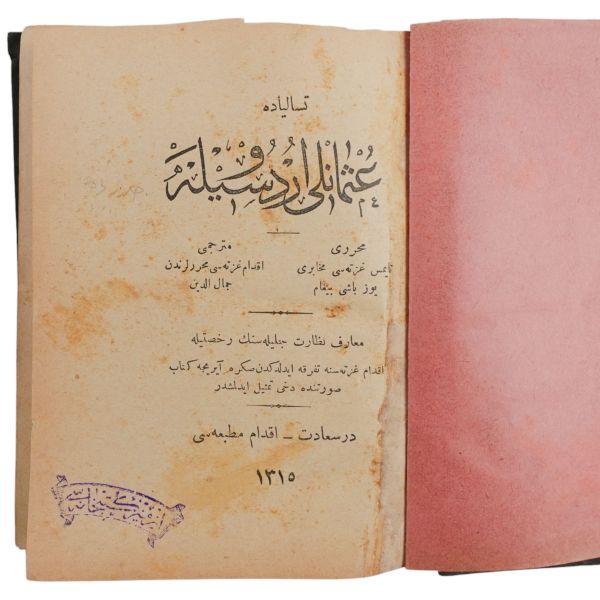 تسالیاده
عثمانلی اردوسیله
محرری
تایمس غزته‌سی مخابری
یوز باشی بیغام
مترجمی
اقدام غزته‌سی محررلرندن
جمال الدین
معارف نظارت جلیله‌سنك رخصتیله
اقدام غزته‌سنه تفرقه ایدلدکدن صکره آیریجه کتاب
صورتنده دخی تمثیل ایدلمشدر
درسعادت ــ اقدام مطبعه‌سی
١٣١٥